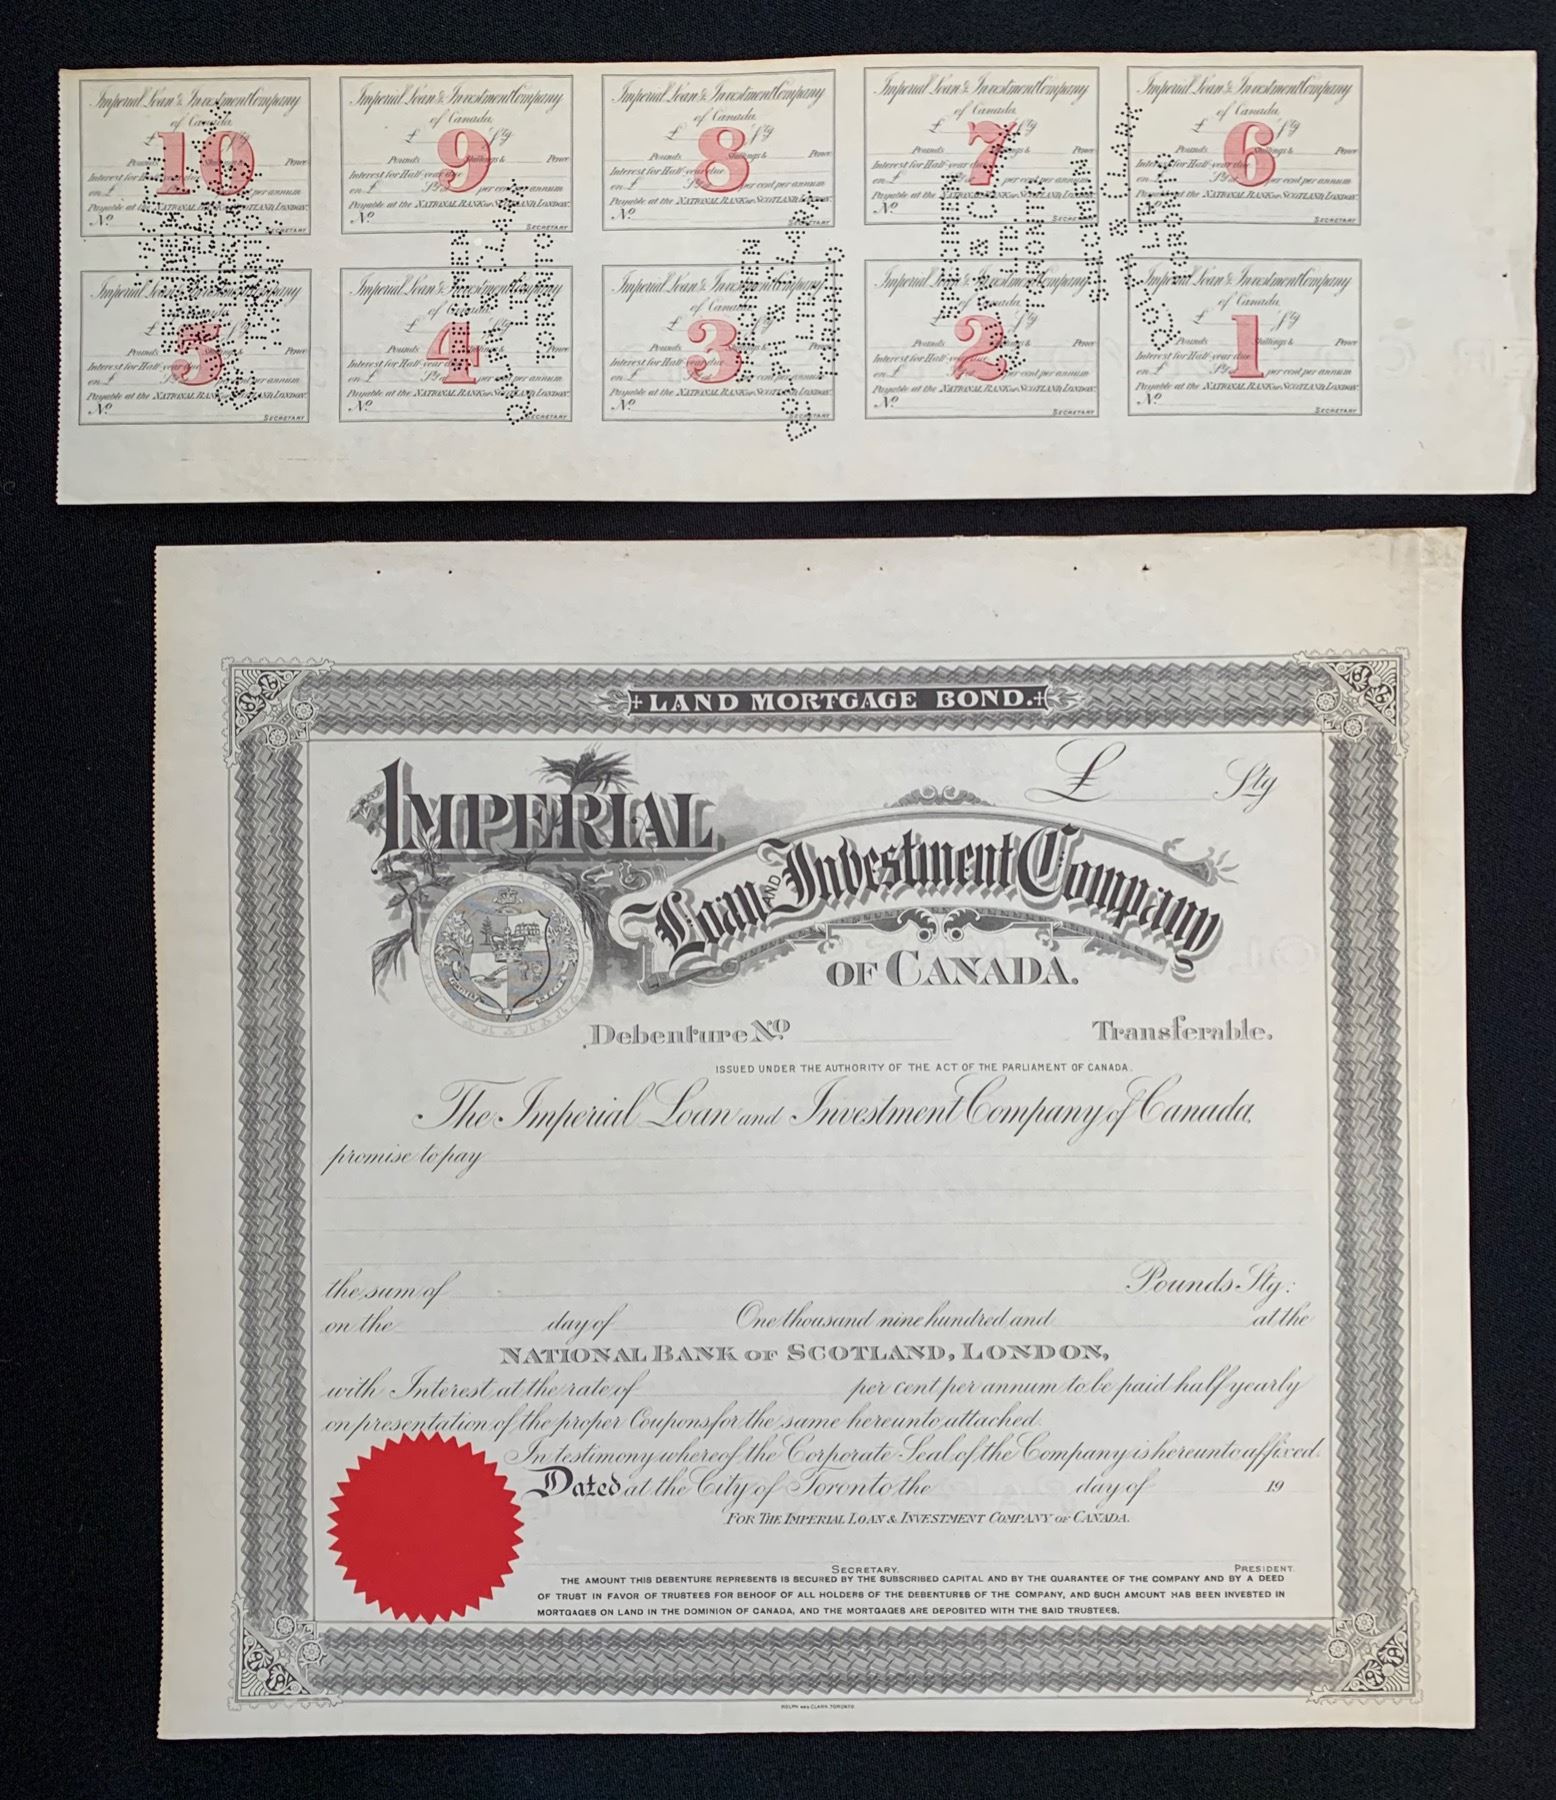 Imperial Loan & Investment Company
of Canada.
£ Stg
10
Pounds Shillings & Pence
Interest for Half-year due
on £ Stg at per cent per annum
Payable at the NATIONAL BANK OF SCOTLAND, LONDON.
No
SECRETARY
Imperial Loan & Investment Company
of Canada.
£ Stg
9
Pounds Shillings & Pence
Interest for Half-year due
on £ Stg at per cent per annum
Payable at the NATIONAL BANK OF SCOTLAND, LONDON.
No
SECRETARY
Imperial Loan & Investment Company
of Canada.
£ Stg
8
Pounds Shillings & Pence
Interest for Half-year due
on £ Stg at per cent per annum
Payable at the NATIONAL BANK OF SCOTLAND, LONDON.
No
SECRETARY
Imperial Loan & Investment Company
of Canada.
£ Stg
7
Pounds Shillings & Pence
Interest for Half-year due
on £ Stg at per cent per annum
Payable at the NATIONAL BANK OF SCOTLAND, LONDON.
No
SECRETARY
Imperial Loan & Investment Company
of Canada.
£ Stg
6
Pounds Shillings & Pence
Interest for Half-year due
on £ Stg at per cent per annum
Payable at the NATIONAL BANK OF SCOTLAND, LONDON.
No
SECRETARY
Imperial Loan & Investment Company
of Canada.
£ Stg
5
Pounds Shillings & Pence
Interest for Half-year due
on £ Stg at per cent per annum
Payable at the NATIONAL BANK OF SCOTLAND, LONDON.
No
SECRETARY
Imperial Loan & Investment Company
of Canada.
£ Stg
4
Pounds Shillings & Pence
Interest for Half-year due
on £ Stg at per cent per annum
Payable at the NATIONAL BANK OF SCOTLAND, LONDON.
No
SECRETARY
Imperial Loan & Investment Company
of Canada.
£ Stg
3
Pounds Shillings & Pence
Interest for Half-year due
on £ Stg at per cent per annum
Payable at the NATIONAL BANK OF SCOTLAND, LONDON.
No
SECRETARY
Imperial Loan & Investment Company
of Canada.
£ Stg
2
Pounds Shillings & Pence
Interest for Half-year due
on £ Stg at per cent per annum
Payable at the NATIONAL BANK OF SCOTLAND, LONDON.
No
SECRETARY
Imperial Loan & Investment Company
of Canada.
£ Stg
1
Pounds Shillings & Pence
Interest for Half-year due
on £ Stg at per cent per annum
Payable at the NATIONAL BANK OF SCOTLAND, LONDON.
No
SECRETARY
LAND MORTGAGE BOND.
£ Stg
IMPERIAL
Loan AND Investment Company
OF CANADA.
Debenture No Transferable.
ISSUED UNDER THE AUTHORITY OF THE ACT OF THE PARLIAMENT OF CANADA.
The Imperial Loan and Investment Company of Canada,
promise to pay
the sum of Pounds Stg:
on the day of One thousand nine hundred and at the
NATIONAL BANK OF SCOTLAND, LONDON,
with Interest at the rate of per cent per annum to be paid half yearly
on presentation of the proper Coupons for the same hereunto attached.
In testimony whereof the Corporate Seal of the Company is hereunto affixed.
Dated at the City of Toronto the day of 19
FOR THE IMPERIAL LOAN & INVESTMENT COMPANY OF CANADA.
SECRETARY. PRESIDENT.
THE AMOUNT THIS DEBENTURE REPRESENTS IS SECURED BY THE SUBSCRIBED CAPITAL AND BY THE GUARANTEE OF THE COMPANY AND BY A DEED
OF TRUST IN FAVOR OF TRUSTEES FOR BEHOOF OF ALL HOLDERS OF THE DEBENTURES OF THE COMPANY, AND SUCH AMOUNT HAS BEEN INVESTED IN
MORTGAGES ON LAND IN THE DOMINION OF CANADA, AND THE MORTGAGES ARE DEPOSITED WITH THE SAID TRUSTEES.
ROLPH AND CLARK, TORONTO